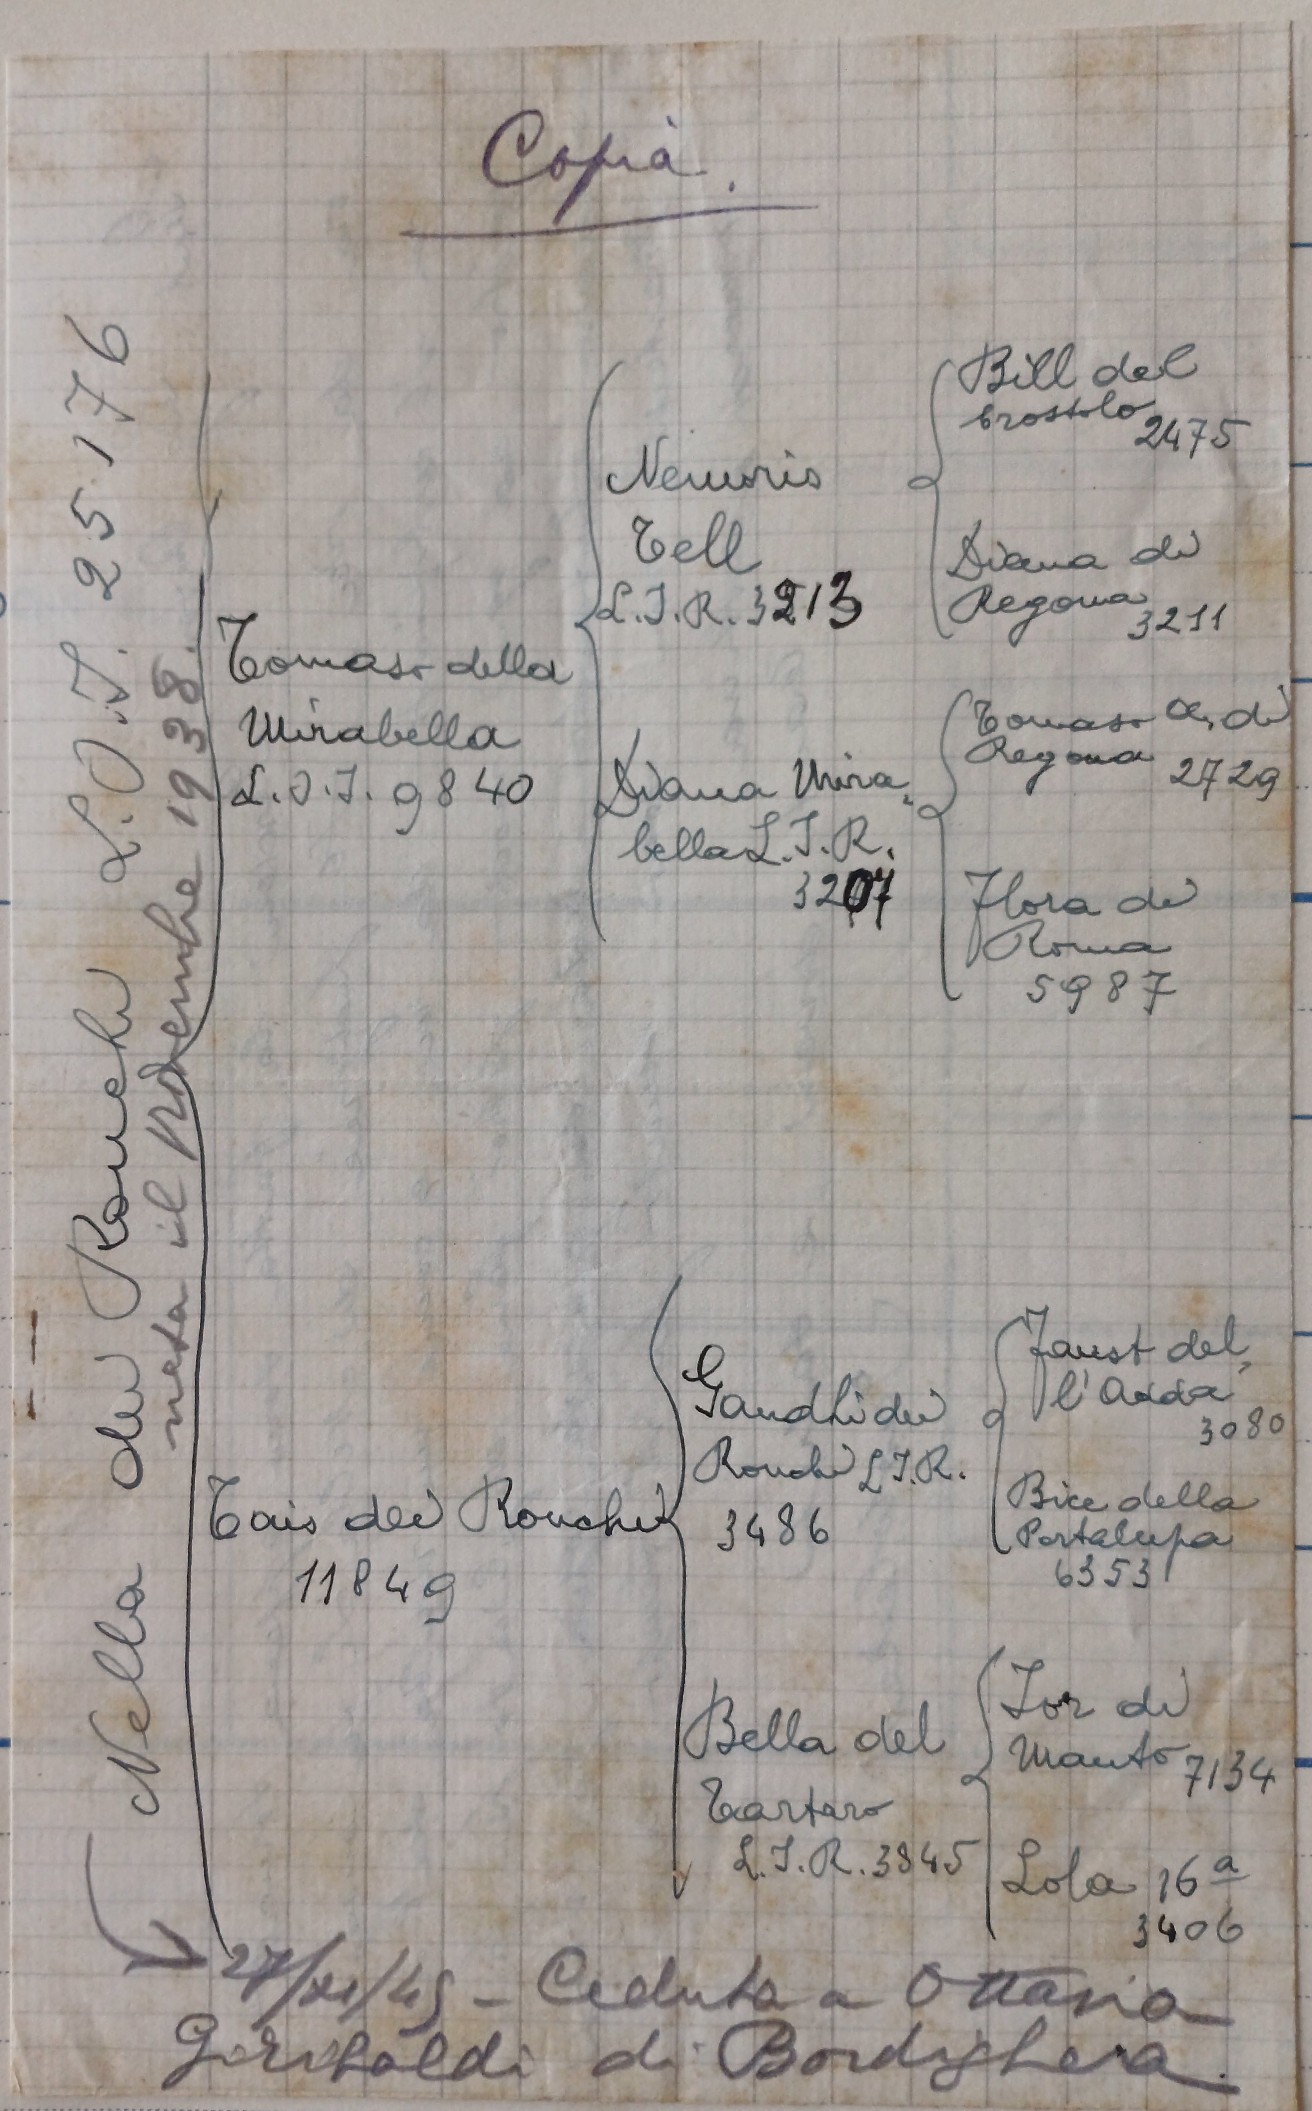 Copia.
Nella dei Ronchi L.O.I. 25176
nata il Novembre 1938.
Tomaso della
Mirabella
L.O.I. 9840
Nemoris
Tell
L.I.R. 3213
Bill del
Crostolo
2475
Diana di
Regona
3211
Diana Mira-
bella L.I.R.
3207
Tomaso di
Regona
2729
Flora di
Roma
5987
Tais dei Ronchi
11849
Gandhi dei
Ronchi L.I.R.
3486
Faust del-
l'Adda
3080
Bice della
Portalupa
6353
Bella del
Tartaro
L.I.R. 3845
Tor di
Manto
7134
Lola 16ª
3406
27/XI/45 - Ceduta a Ottavio
Garibaldi di Bordighera.